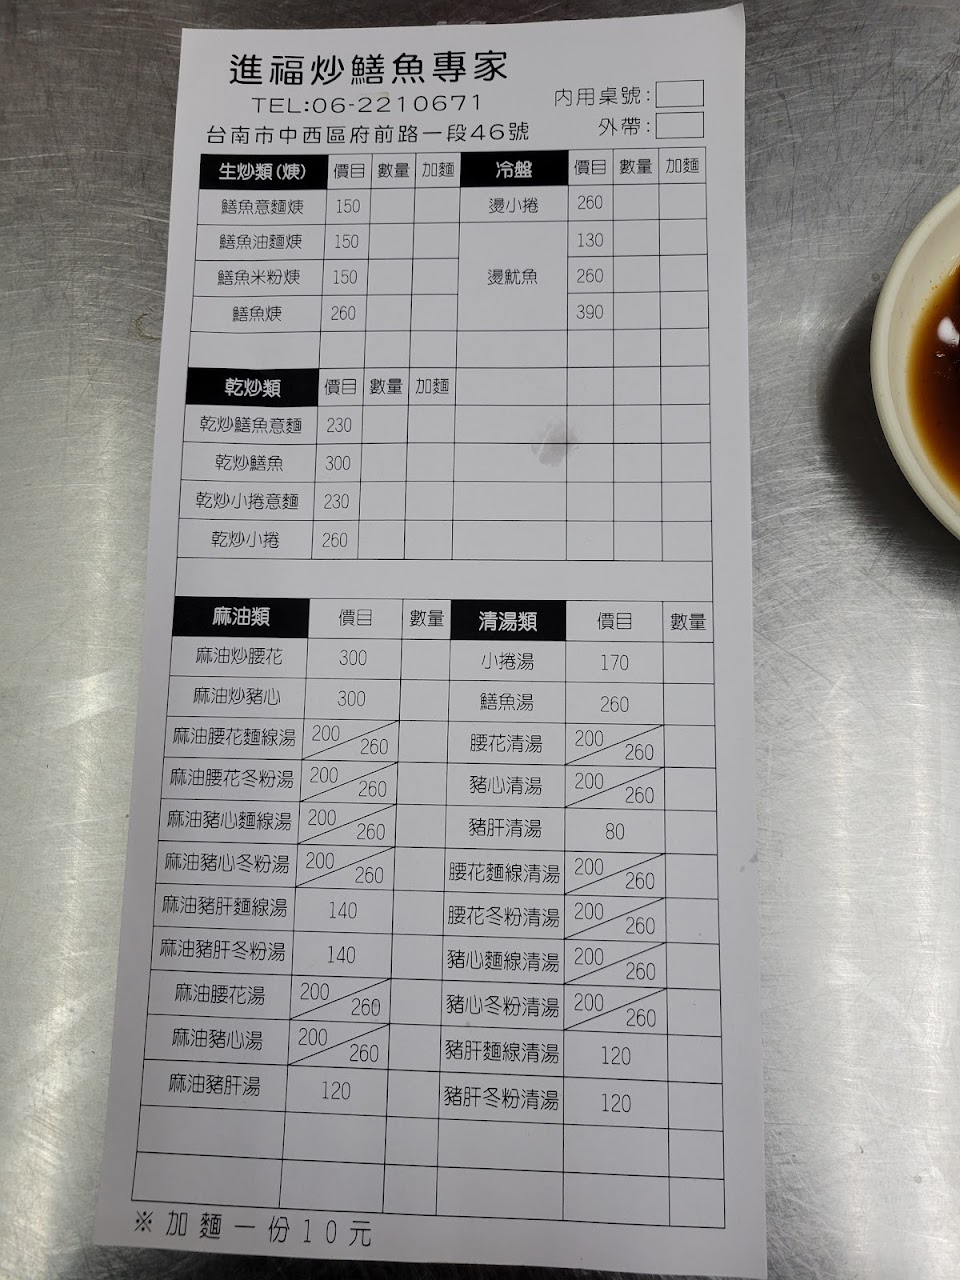 進福炒鱔魚專家
TEL:06-2210671
台南市中西區府前路一段46號
內用桌號:
外帶:
生炒類(焿) 價目 數量 加麵 冷盤 價目 數量 加麵
鱔魚意麵焿 150 燙小捲 260
鱔魚油麵焿 150 130
鱔魚米粉焿 150 燙魷魚 260
鱔魚焿 260 390
乾炒類 價目 數量 加麵
乾炒鱔魚意麵 230
乾炒鱔魚 300
乾炒小捲意麵 230
乾炒小捲 260
麻油類 價目 數量 清湯類 價目 數量
麻油炒腰花 300 小捲湯 170
麻油炒豬心 300 鱔魚湯 260
麻油腰花麵線湯 200/260 腰花清湯 200/260
麻油腰花冬粉湯 200/260 豬心清湯 200/260
麻油豬心麵線湯 200/260 豬肝清湯 80
麻油豬心冬粉湯 200/260 腰花麵線清湯 200/260
麻油豬肝麵線湯 140 腰花冬粉清湯 200/260
麻油豬肝冬粉湯 140 豬心麵線清湯 200/260
麻油腰花湯 200/260 豬心冬粉清湯 200/260
麻油豬心湯 200/260 豬肝麵線清湯 120
麻油豬肝湯 120 豬肝冬粉清湯 120
※加麵一份10元